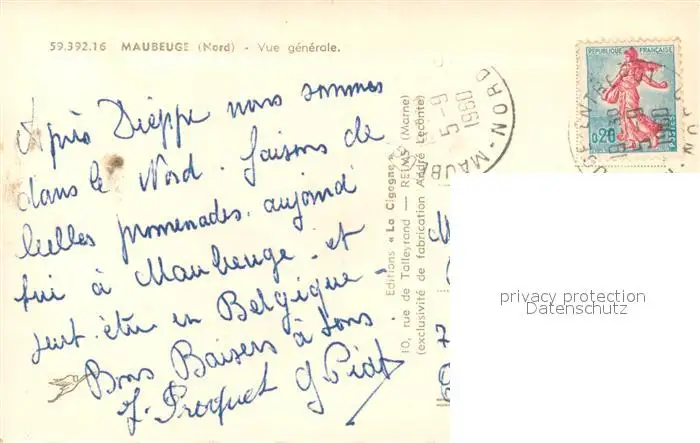 59.392.16 MAUBEUGE (Nord) - Vue générale.
Après Dieppe nous sommes
dans le Nord. faisons de
belles promenades. aujourd
hui à Maubeuge. et
peut. être en Belgique -
Bons Baisers à tous.
J. Proquet G Piat
Editions « La Cigogne »
10, rue de Talleyrand — REIMS (Marne)
(exclusivité de fabrication André Leconte)
5-9
1960
NORD
REPUBLIQUE FRANÇAISE
0,20
POSTES
privacy protection
Datenschutz